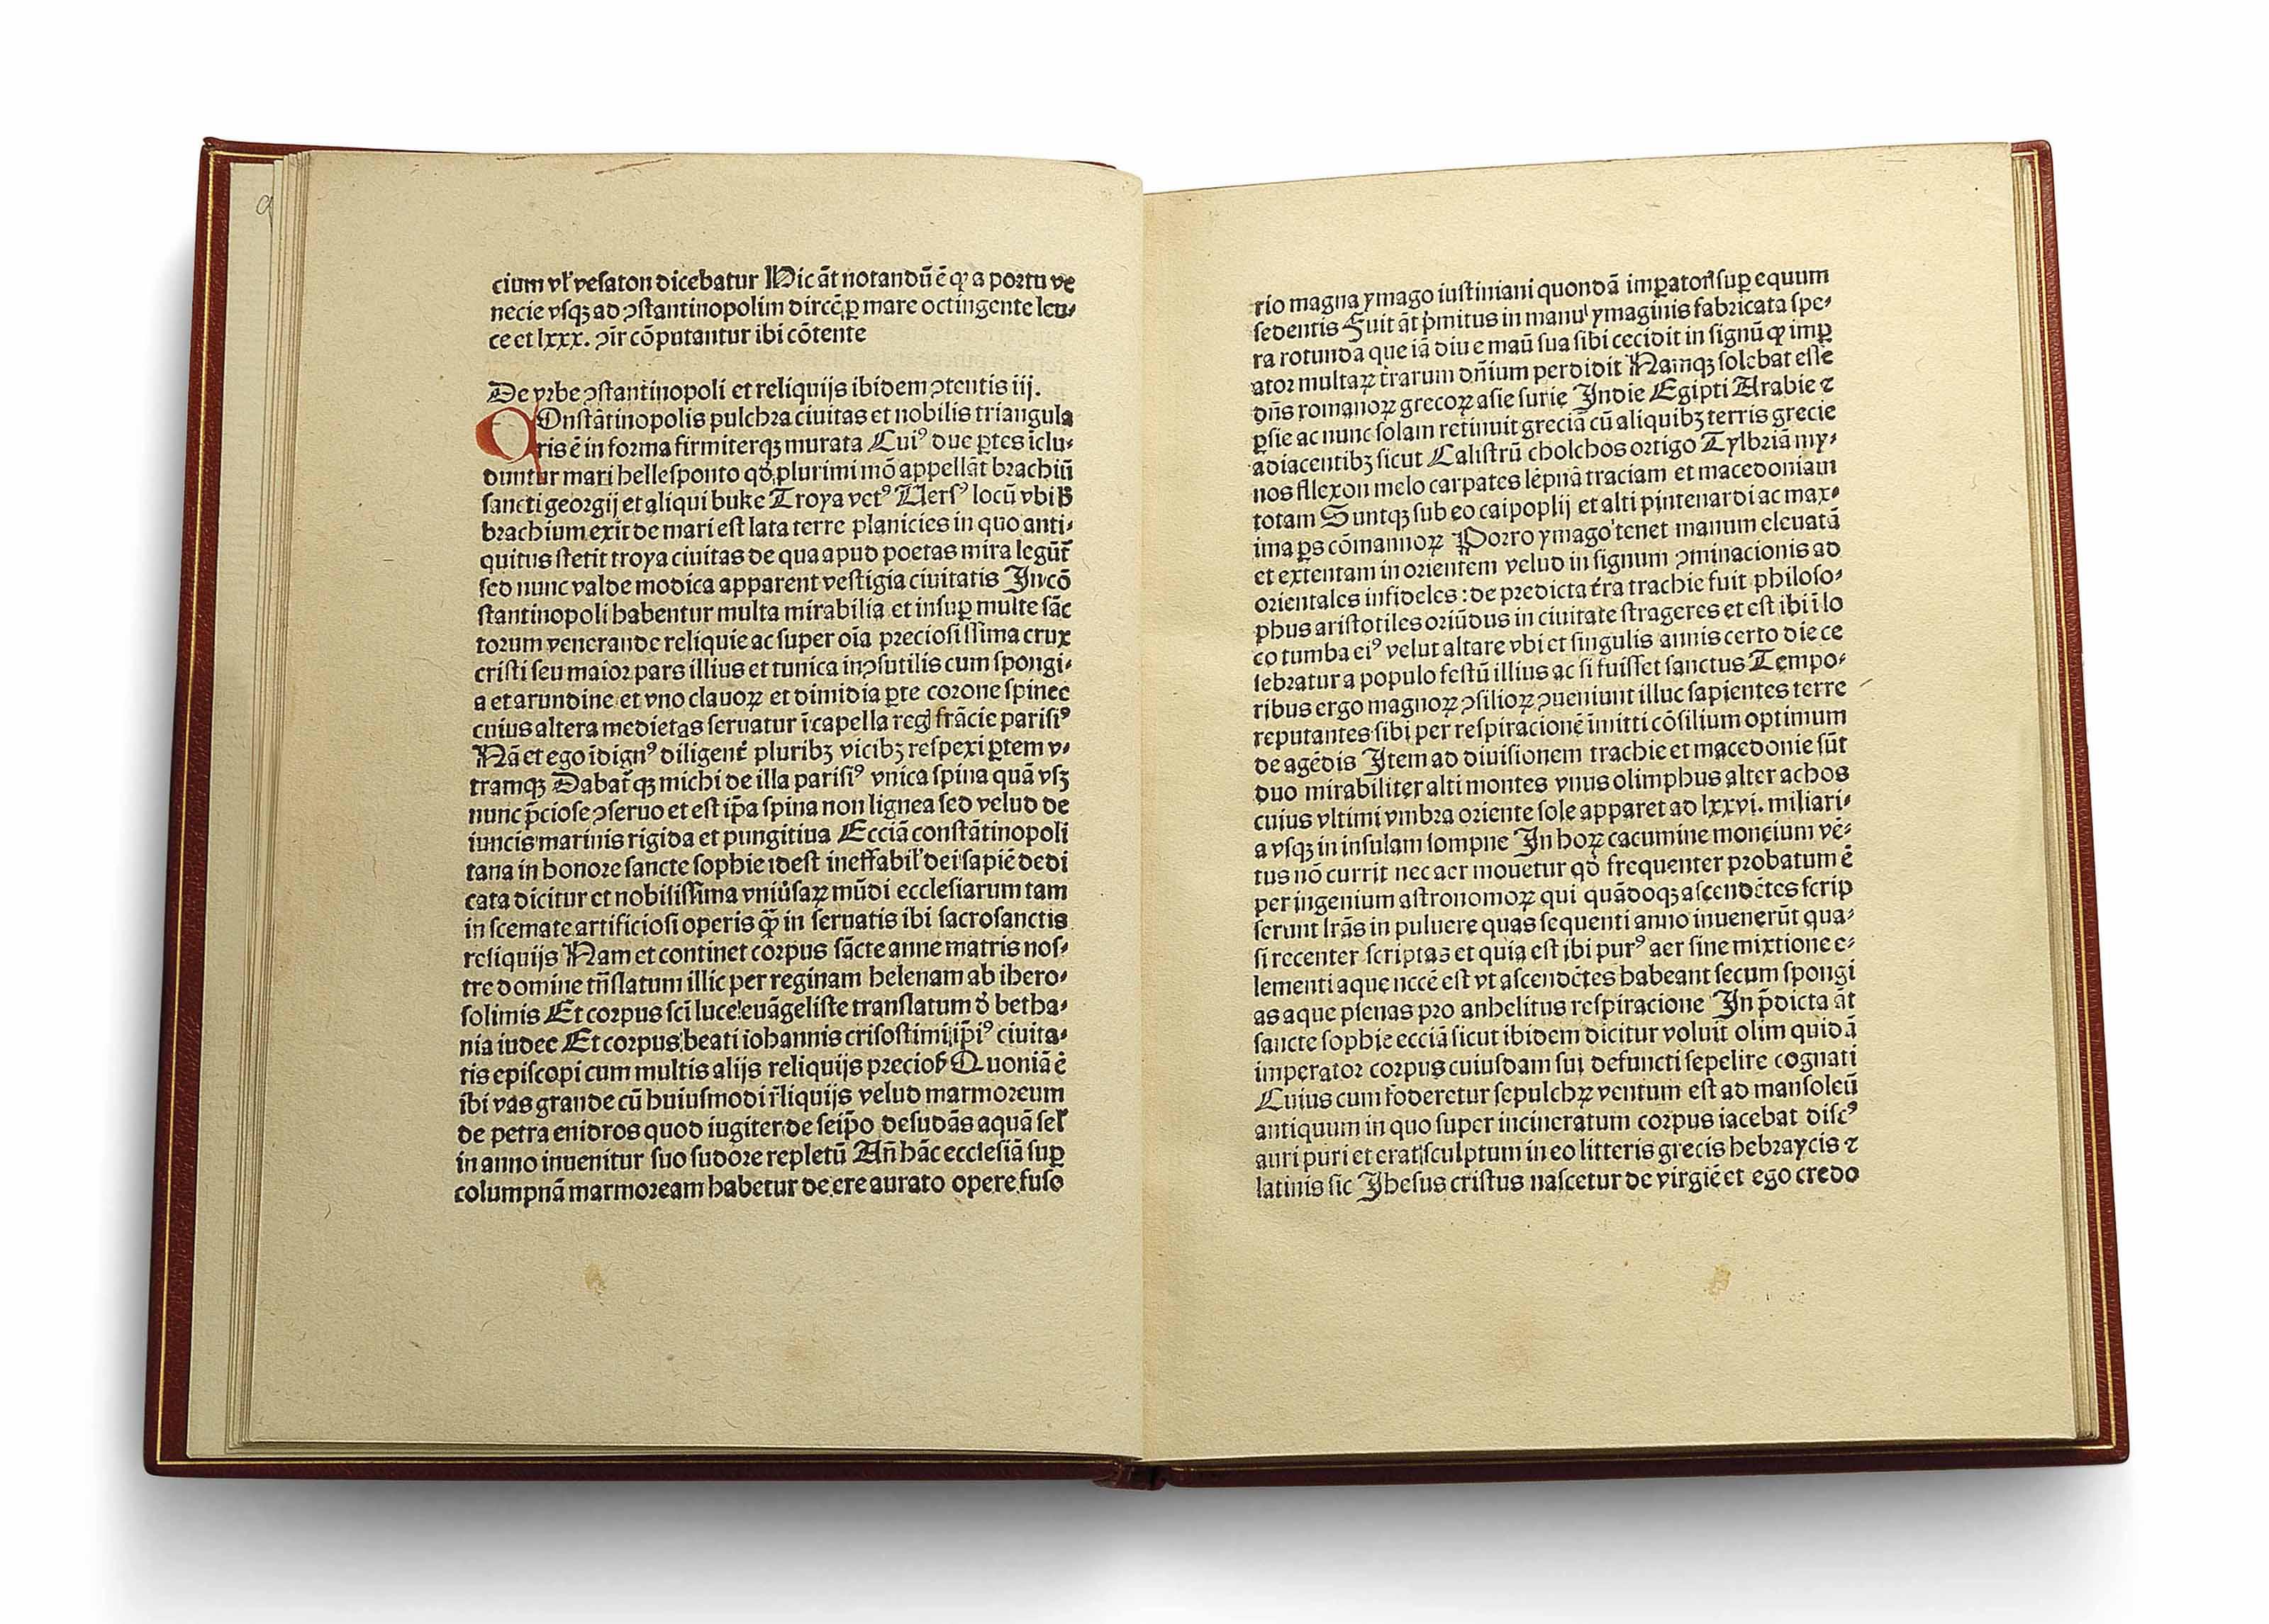 cium vł vesaton dicebatur Hic āt notandū ē qꝙ a portu ve
necie vsqꝫ ad ꝯstantinopolim dircē ꝑ mare octingente leu⸗
ce et lxxx. ꝯīr cōputantur ibi cōtente
De vrbe ꝯstantinopoli et reliquijs ibidem ꝯtentis iij.
COnstātinopolis pulchra ciuitas et nobilis triangula
ris ē in forma firmiterqꝫ murata Cuiꝰ due ꝑtes īclu⸗
duntur mari hellesponto qđ plurimi mō appellāt brachiū
sancti georgij et aliqui buke Troya vetꝰ Uersꝰ locū vbi ħ
brachium exit de mari est lata terre planicies in quo anti⸗
quitus stetit troya ciuitas de qua apud poetas mira legūt
sed nunc valde modica apparent vestigia ciuitatis In cō
stantinopoli habentur multa mirabilia et insuꝑ multe sāc
torum venerande reliquie ac super oīa preciosissima crux
cristi seu maior pars illius et tunica inꝯsutilis cum spongi⸗
a et arundine et vno clauoꝝ et dimidia ꝑte corone spinee
cuius altera medietas seruatur ī capella regſ frācie parisiꝰ
Nā et ego īdignꝰ diligent̄ pluribꝫ vicibꝫ respexi ꝑtem v⸗
tramqꝫ Dabat̄ qꝫ michi de illa parisiꝰ vnica spina quā vsqꝫ
nunc p̄ciose ꝯseruo et est ip̄a spina non lignea sed velud de
iuncis marinis rigida et pungitiua Ecciā constātinopoli
tana in honore sancte sophie idest ineffabił dei sapiē dedi
cata dicitur et nobilissima vniūsaꝝ mūdi ecclesiarum tam
in scemate artificiosi operis qꝫ̄ in seruatis ibi sacrosanctis
reliquijs Nam et continet corpus sācte anne matris nos⸗
tre domine trn̄slatum illic per reginam helenam ab ihero⸗
solimis Et corpus scī luce euāgeliste translatum đ betha⸗
nia iudee Et corpus beati iohannis crisostimi ip̄iꝰ ciuita⸗
tis episcopi cum multis alijs reliquijs precioſ Quoniā ē
ibi vas grande cū huiusmodi rl̄iquijs velud marmoreum
de petra enidros quod iugiter de seip̄o desudās aquā seł
in anno inuenitur suo sudore repletū An̄ hāc ecclesiā suꝑ
columpnā marmoream habetur de ere aurato opere fuso
rio magna ymago iustiniani quondā imꝑatorſ suꝑ equum
sedentis Fuit āt p̄mitus in manu ymaginis fabricata spe⸗
ra rotunda que iā diu e manū sua sibi cecidit in signū qꝙ imꝑ
ator multaꝝ tr̄arum dn̄ium perdidit Namqꝫ solebat esse
dn̄s romanoꝝ grecoꝝ asie surie Indie Egipti Arabie ⁊
ꝑsie ac nunc solam retinuit greciā cū aliquibꝫ terris grecie
adiacentibꝫ sicut Calistrū cholchos ortigo Tylbria my⸗
nos flexon melo carpates lēpnā traciam et macedoniam
totam Suntqꝫ sub eo caipoplij et alti pintenardi ac max⸗
ima ꝑs cōmannoꝝ Porro ymago tenet manum eleuatā
et extentam in orientem velud in signum ꝯminacionis ad
orientales infideles : de predicta t̄ra trachie fuit philoso⸗
phus aristotiles oriūdus in ciuitate strageres et est ibi ī lo
co tumba eiꝰ velut altare vbi et singulis annis certo die ce
lebratur a populo festū illius ac si fuisset sanctus Tempo⸗
ribus ergo magnoꝝ ꝯsilioꝝ ꝯueniunt illuc sapientes terre
reputantes sibi per respiracionē īmitti cōsilium optimum
de agēdis Item ad diuisionem trachie et macedonie sūt
duo mirabiliter alti montes vnus olimphus alter achos
cuius vltimi vmbra oriente sole apparet ad lxxvi. miliari⸗
a vsqꝫ in insulam lompne In hoꝝ cacumine moncium vē⸗
tus nō currit nec aer mouetur qđ frequenter probatum ē
per ingenium astronomoꝝ qui quādoqꝫ ascendētes scrip
serunt lr̄as in puluere quas sequenti anno inuenerūt qua⸗
si recenter scriptas et quia est ibi purꝰ aer sine mixtione e⸗
lementi aque nccē est vt ascendētes habeant secum spongi
as aque plenas pro anhelitus respiracione In p̄dicta āt
sancte sophie ecciā sicut ibidem dicitur voluit olim quidā
imperator corpus cuiusdam sui defuncti sepelire cognati
Cuius cum foderetur sepulchꝝ ventum est ad mansoleū
antiquum in quo super incineratum corpus iacebat discꝰ
auri puri et erat sculptum in eo litteris grecis hebraycis ⁊
latinis sic Ihesus cristus nascetur de virgiē et ego credo